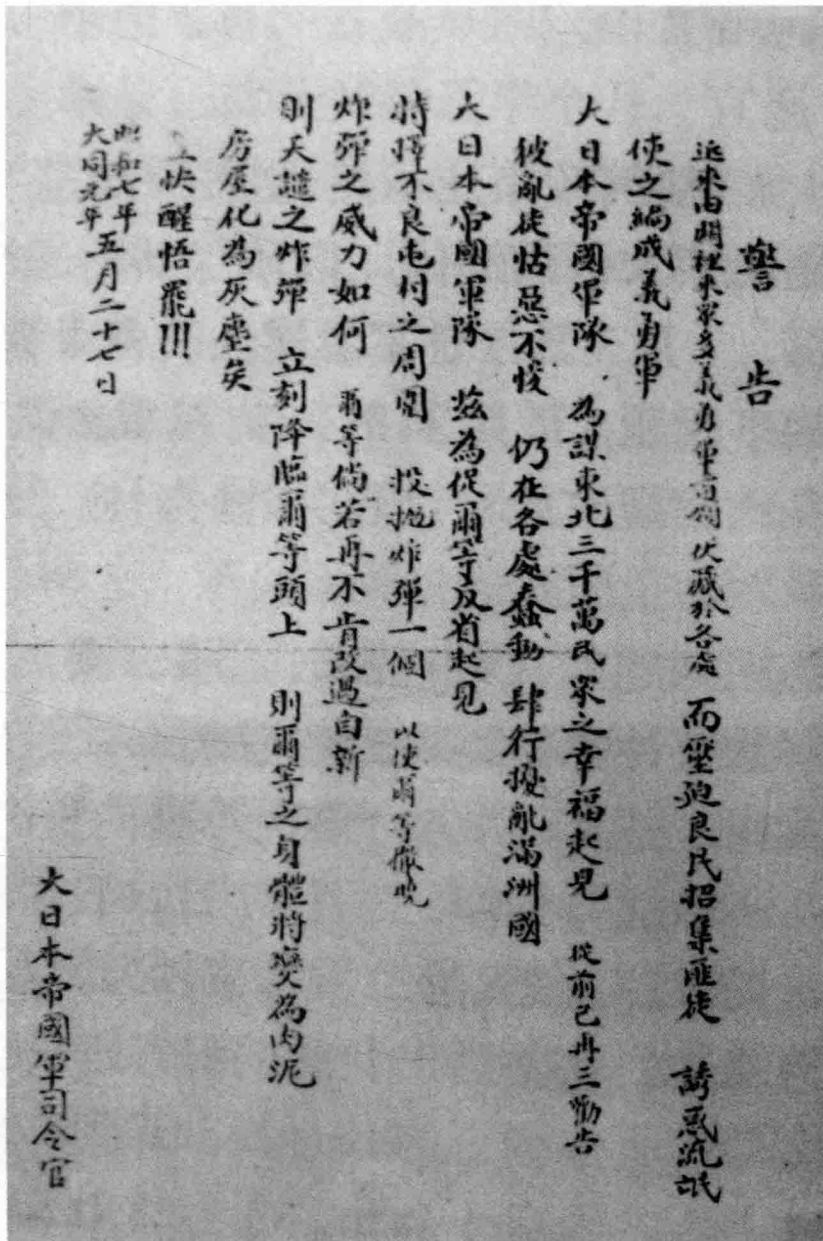 警告
近來由關裡來眾多義勇軍首領伏藏於各處 而壓迫良民招集匪徒 誘惑流氓
使之編成義勇軍
大日本帝國軍隊 為謀東北三千萬民眾之幸福起見 從前已再三勸告
彼亂徒怙惡不悛 仍在各處蠢動 肆行擾亂滿洲國
大日本帝國軍隊 茲為促爾等反省起見
特擇不良屯村之周圍 投拋炸彈一個 以使爾等徹曉
炸彈之威力如何 爾等倘若再不肯改過自新
則天譴之炸彈 立刻降臨爾等頭上 則爾等之身體將變為肉泥
房屋化為灰塵矣
快醒悟罷!!!
昭和七年
大同元年 五月二十七日
大日本帝國軍司令官